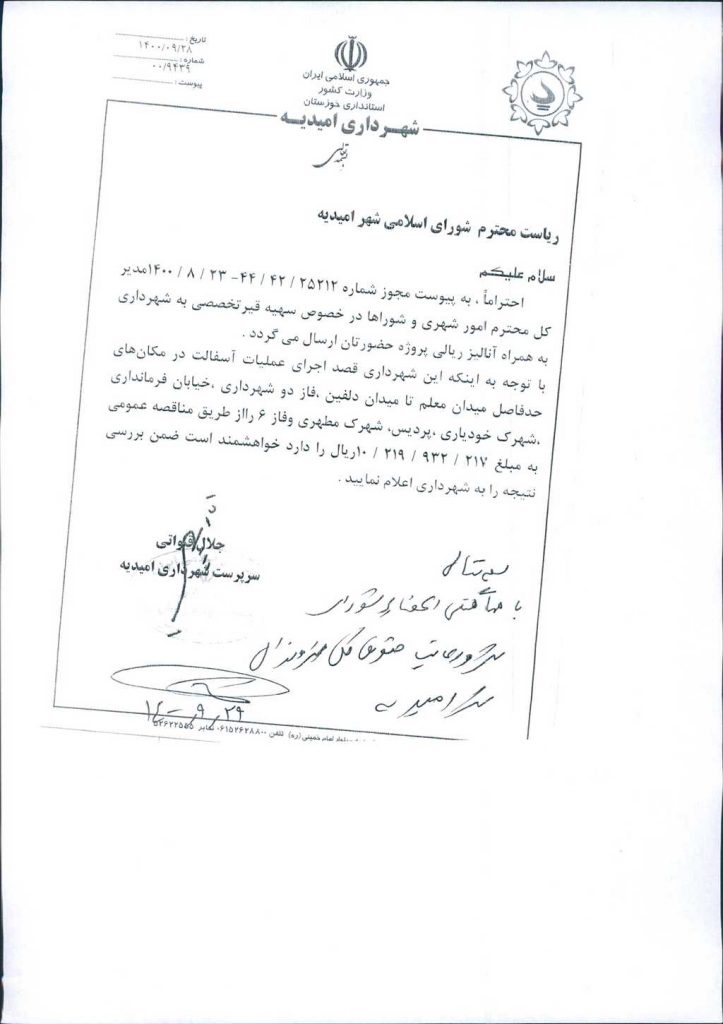 تاریخ: ۱۴۰۰/۰۹/۲۸
شماره: ۰۰/۹۴۳۹
پیوست:
جمهوری اسلامی ایران
وزارت کشور
استانداری خوزستان
شهرداری امیدیه
ریاست محترم شورای اسلامی شهر امیدیه
سلام علیکم
احتراماً ، به پیوست مجوز شماره ۲۵۲۱۲ / ۴۲ / ۴۴- ۲۳ / ۸ / ۱۴۰۰مدیر
کل محترم امور شهری و شوراها در خصوص سهیه قیرتخصصی به شهرداری
به همراه آنالیز ریالی پروژه حضورتان ارسال می گردد .
با توجه به اینکه این شهرداری قصد اجرای عملیات آسفالت در مکان‌های
حدفاصل میدان معلم تا میدان دلفین ،فاز دو شهرداری ،خیابان فرمانداری
،شهرک خودیاری ،پردیس، شهرک مطهری وفاز ۶ رااز طریق مناقصه عمومی
به مبلغ ۲۱۷ / ۹۳۲ / ۲۱۹ / ۱۰ریال را دارد خواهشمند است ضمن بررسی
نتیجه را به شهرداری اعلام نمایید .
جلال قنواتی
سرپرست شهرداری امیدیه
با
شورای
امیدیه
۲۹ ر ۹ ر ۱۴۰۰
امام خمینی (ره) تلفن ۰۶۱۵۲۶۲۸۸۰۰ نمابر ۵۲۶۲۲۵۵۵